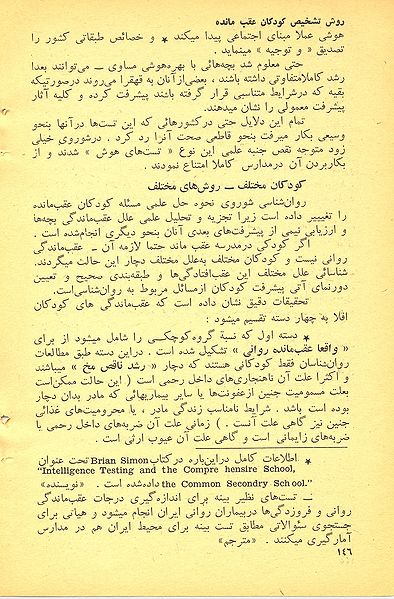 روش تشخیص کودکان عقب مانده
هوشی عملا مبنای اجتماعی پیدا میکند * و خصائص طبقاتی کشور را
تصدیق « و توجیه » مینماید .
حتی معلوم شد بچه‌هائی با بهره‌هوشی مساوی ــ می‌توانند بعدا
رشد کاملامتفاوتی داشته باشند ، بعضی‌ازآنان به قهقرا می‌روند درصورتیکه
بقیه که درشرایط متناسبی قرار گرفته باشند پیشرفت کرده و کلیه آثار
پیشرفت معمولی را نشان میدهند.
تمام این دلایل حتی درکشورهائی که این تست‌ها درآنها بنحو
وسیعی بکار میرفت بنحو قاطعی صحت آنرا رد کرد . درشوروی خیلی
زود متوجه نقص جنبه علمی این نوع « تست‌های هوش » شدند و از
بکاربردن آن درمدارس کاملا امتناع نمودند .
کودکان مختلف ــ روش‌های مختلف
روان‌شناسی شوروی نحوه حل علمی مسئله کودکان عقب‌مانده
را تغییر داده است زیرا تجزیه و تحلیل علمی علل عقب‌ماندگی بچه‌ها
و ارزیابی نیمی از پیشرفت‌های بعدی آنان بنحو دیگری انجام‌شده است .
اگر کودکی درمدرسه عقب ماند حتما لازمه آن ــ عقب‌ماندگی
روانی نیست و کودکان مختلف به‌علل مختلف دچار این حالت میگردند.
شناسائی علل مختلف این عقب‌افتادگی‌ها و طبقه‌بندی صحیح و تعیین
دورنمای آتی پیشرفت کودکان ازمسائل مربوط به روان‌شناسی‌است.
تحقیقات دقیق نشان داده است که عقب‌ماندگی های کودکان
اقلا به چهار دسته تقسیم میشود :
* دسته اول که نسبة گروه‌کوچکی را شامل میشود از برای
« واقعا عقب‌مانده روانی » تشکیل شده است . دراین دسته طبق مطالعات
روان‌شناسان فقط کودکانی هستند که دچار « رشد ناقص مخ » میباشند
و اکثرا علت آن ناهنجاری‌های داخل رحمی است ( این حالت ممکن‌است
بعلت مسمومیت جنین ازعفونت‌ها یا سایر بیماریهائی که مادر بدان دچار
بوده است باشد . شرایط نامناسب زندگی مادر ، یا محرومیت‌های غذائی
جنین نیز گاهی علت آنست . ) زمانی علت آن ضربه‌های داخل رحمی یا
ضربه‌های زایمانی است و گاهی علت آن عیوب ارثی است .
* اطلاعات کامل دراین‌باره درکتاب Brian Simon تحت عنوان
"Intelligence Testing and the Compre hensire School,
the Common Secondry School." داده‌شده است . «نویسنده»
ــ تست‌های نظیر بینه برای اندازه‌گیری درجات عقب‌ماندگی
روانی و فروزدگی‌ها دربیماران روانی ایران انجام میشود و هیأتی برای
جستجوی سئوالاتی مطابق تست بینه برای محیط ایران هم در مدارس
آمارگیری میکنند . «مترجم»
۱۴۶